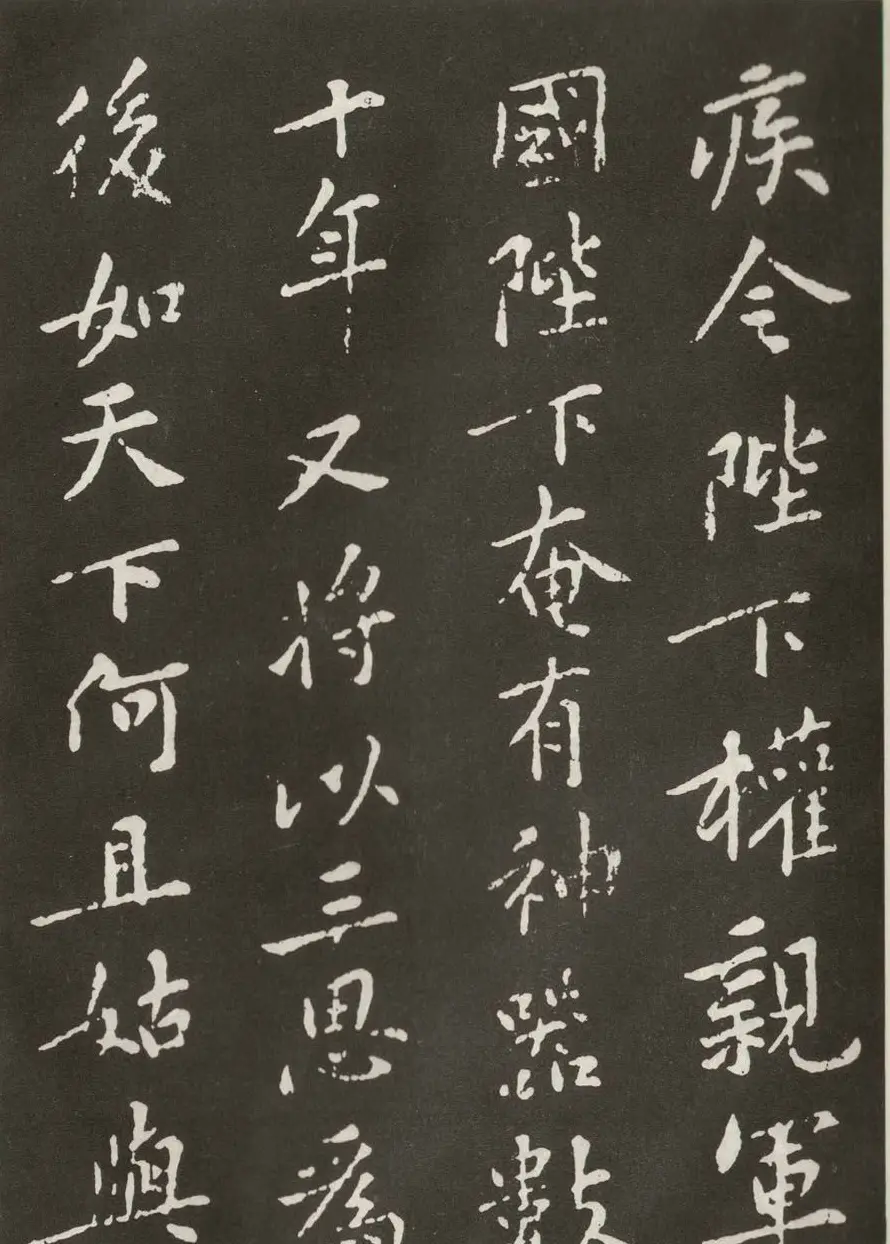 疾今陛下權親軍
國陛下奄有神器數
十年又將以三思爲
後如天下何且姑與